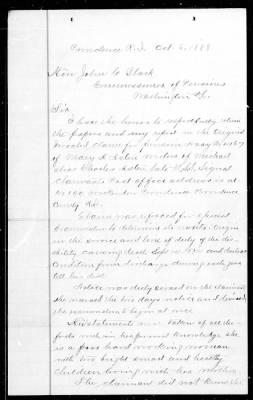 Providence R.I. Oct 6, 1888
Hon John C Black
Commissioner of Pensions
Washington D.C.
Sir
I have the honor to respectfully return
the papers and my report in the Original
claim for pension
of Mary widow of Michael
alias Charles late U.S. Signal
claimants Post office address is at
Providence Providence
County R.I.
Claim was referred for special
examination to determine its merits. Origin
in the service and line of duty of the dis-
ability causing death
condition from discharge during each year
till his died
Notice was duly served on the claimant
she waived the two days notice and desired
the examination to begin at once
A statement was taken of all the
facts within her present knowledge she
is a poor hard working woman
with two bright smart and healthy
children living with her
The claimant did not know the